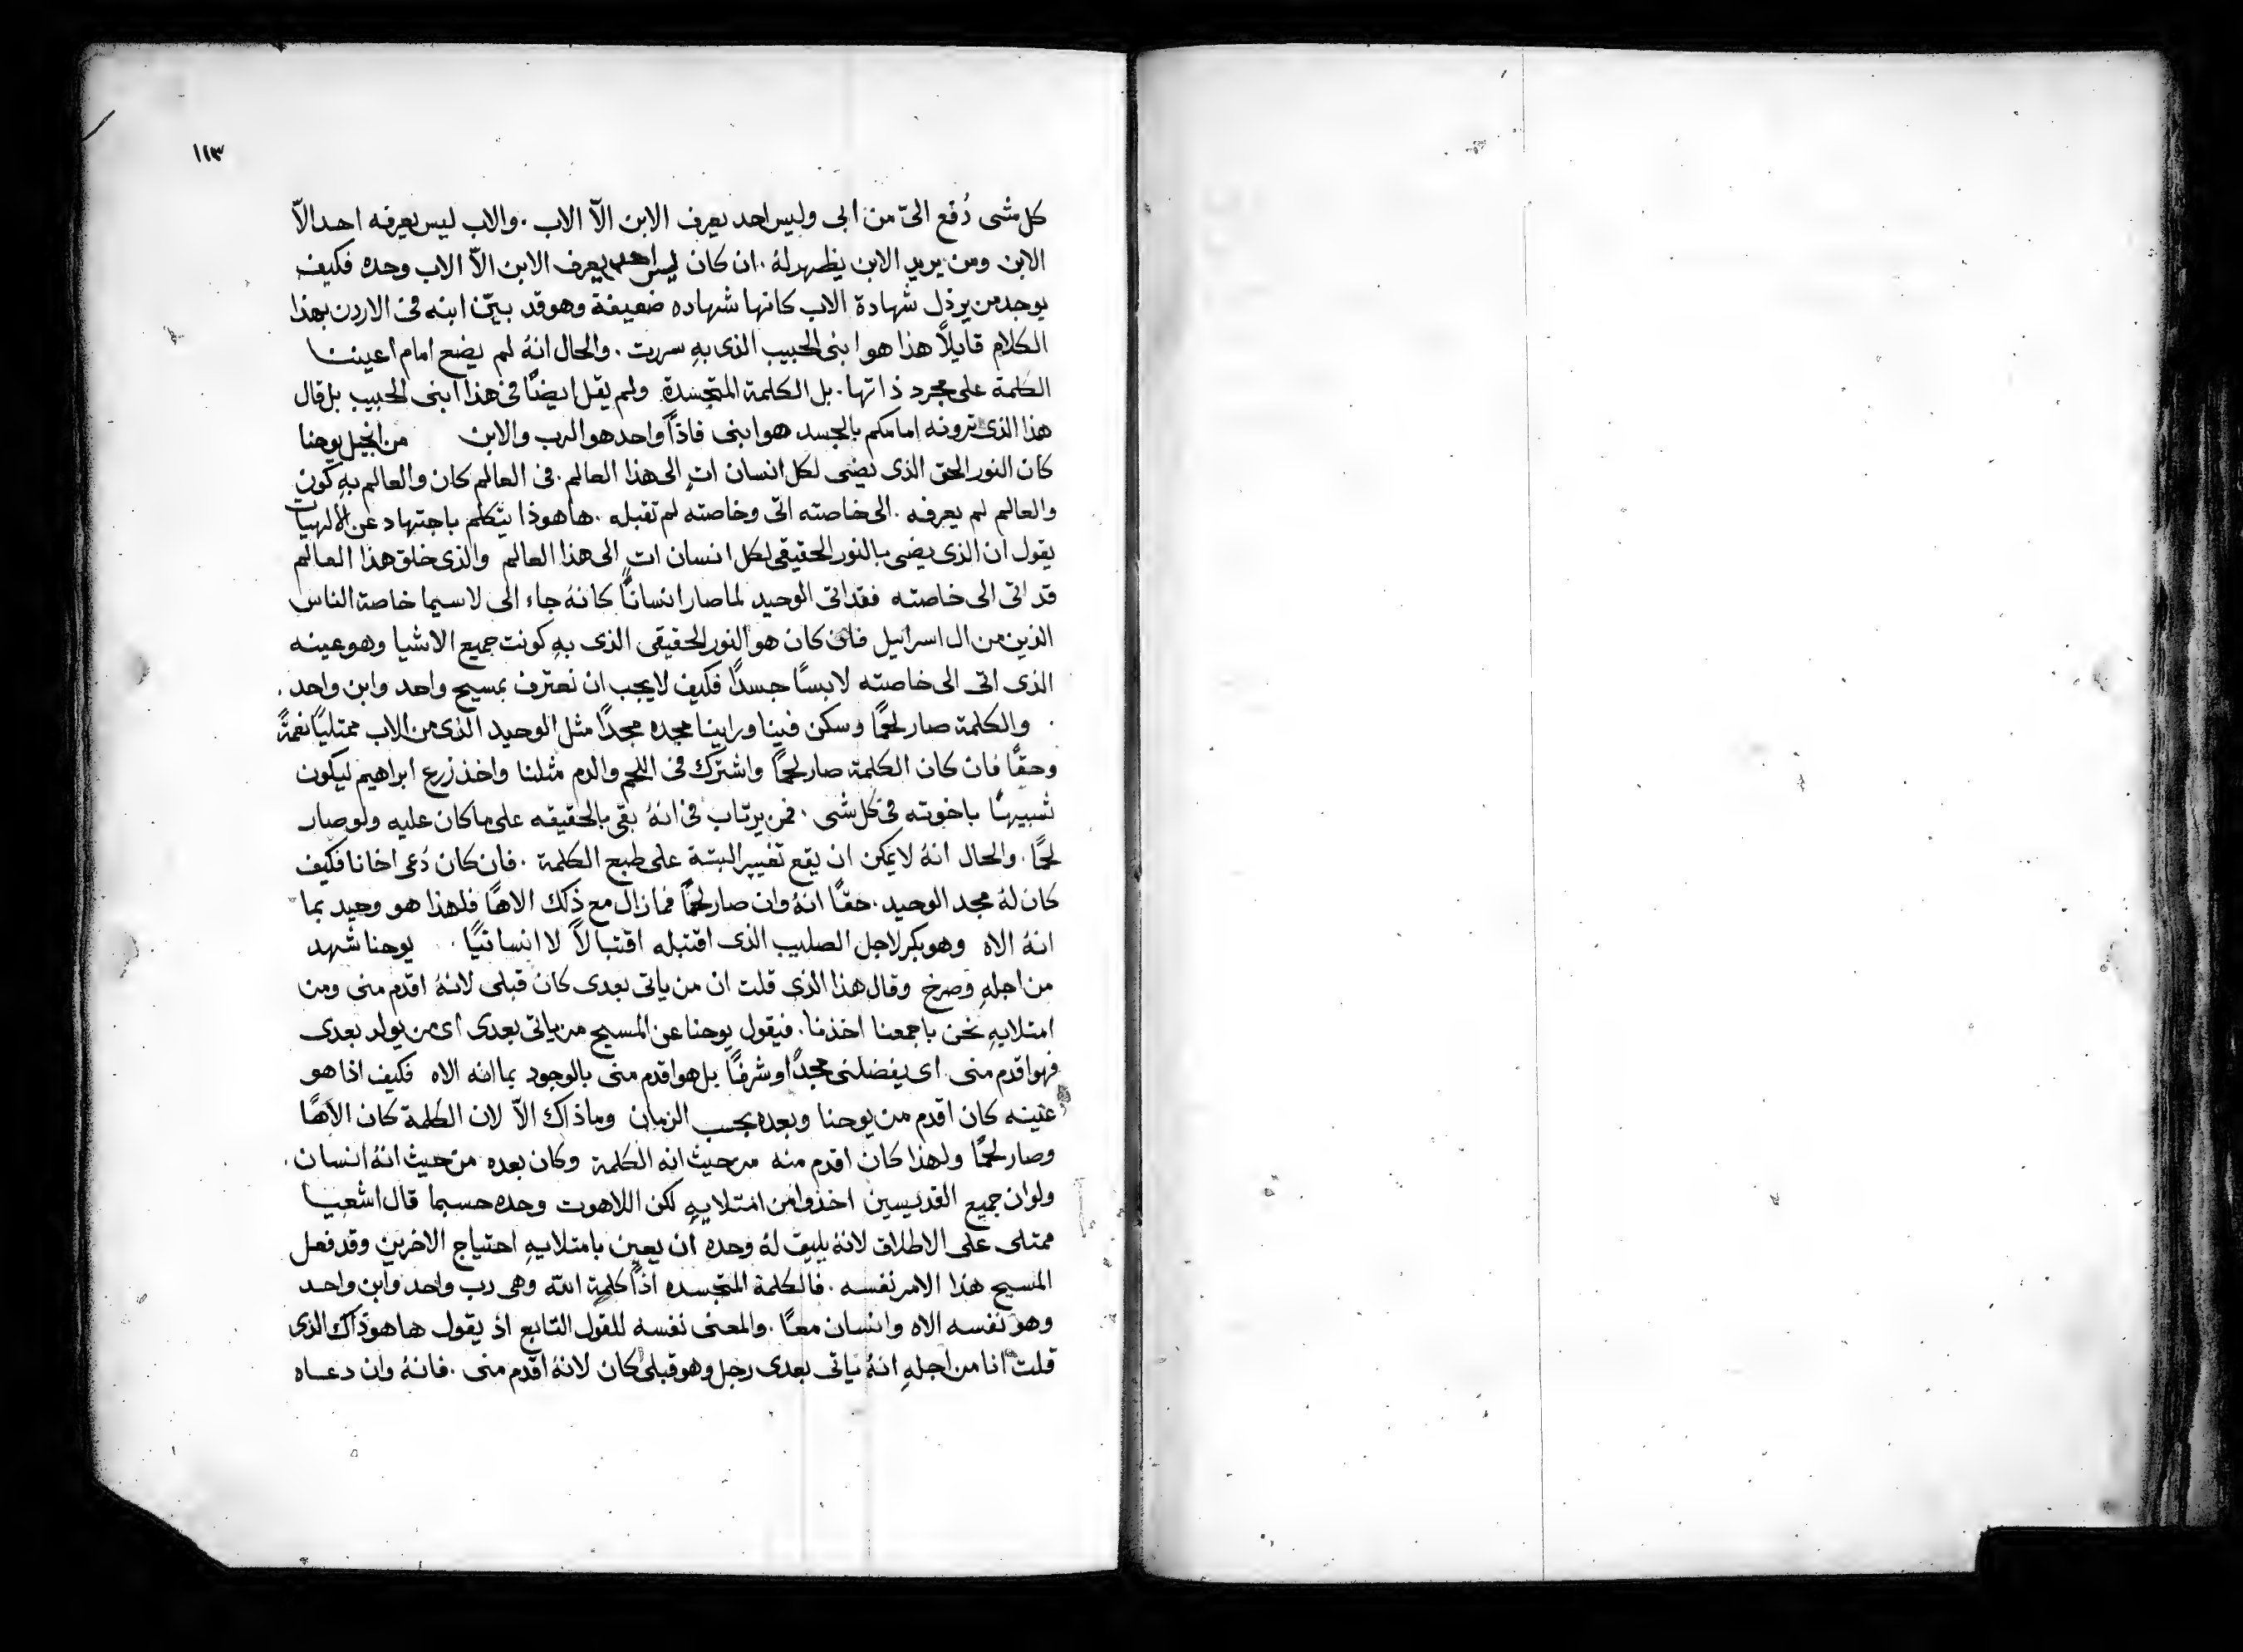 ١١٣
كل شى دُفع الىّ من ابى وليس احد يعرف الابن الّا الاب . والاب ليس يعرفه احد الّا
الابن ومن يريد الابن يظهر لهُ . ان كان ليس احد يعرف الابن الّا الاب وحده فكيف
يوجد من يرذل شهادة الاب كانها شهاده ضعيفة وهو قد بيّن ابنه فى الاردن بهذا
الكلام قايلًا هذا هو ابنى الحبيب الذى بهِ سررت . والحال انهُ لم يضع امام اعيننا
الكلمة على مجرد ذاتها . بل الكلمة المتجسدة ولم يقل ايضًا فى هذا ابنى الحبيب بل قال
هذا الذى ترونه امامكم بالجسد هو ابنى فاذًا واحد هو الرب والابن من انجيل يوحنا
كان النور الحق الذى يضى لكل انسان اتٍ الى هذا العالم . فى العالم كان والعالم بهِ كون
والعالم لم يعرفه . الى خاصته اتى وخاصته لم تقبله . ها هوذا يتكلم باجتهاد عن الالهيات
يقول ان الذى يضى بالنور الحقيقى لكل انسان اتٍ الى هذا العالم والذى خلق هذا العالم
قد اتى الى خاصته فقد اتى الوحيد لما صار انسانًا كانهُ جاء الى لاسيما خاصة الناس
الذين من ال اسراييل فان كان هو النور الحقيقى الذى بهِ كونت جميع الاشيا وهو عينه
الذى اتى الى خاصته لابسًا جسدًا فكيف لا يجب ان نعترف بمسيح واحد وابن واحد .
. والكلمة صار لحمًا وسكن فينا وراينا مجده مجدًا مثل الوحيد الذى من الاب ممتليًا نعمةً
وحقًا فان كان الكلمة صار لحمًا واشترك فى اللحم والدم مثلنا واخذ زرع ابراهيم ليكون
شبيهًا باخوته فى كل شى . فمن يرتاب فى انهُ بقى بالحقيقه على ما كان عليه ولو صار
لحمًا . والحال انهُ لا يمكن ان يقع تغيير البتة على طبع الكلمة . فان كان دُعى اخانا فكيف
كان لهُ مجد الوحيد . حقًا انهُ وان صار لحمًا فما زال مع ذلك الاهًا فلهذا هو وحيد بما
انهُ الاه وهو بكر لاجل الصليب الذى اقتبله اقتبالًا لا انسانيًا . يوحنا شهد
من اجلهِ وصرخ وقال هذا الذى قلت ان من ياتى بعدى كان قبلى لانهُ اقدم منى ومن
امتلايهِ نحن باجمعنا اخذنا . فيقول يوحنا عن المسيح من ياتى بعدى اى من يولد بعدى
فهو اقدم منى اى يفضلنى مجدًا وشرفًا بل هو اقدم منى بالوجود بما انه الاه فكيف اذا هو
عينه كان اقدم من يوحنا وبعده بحسب الزمان وما ذاك الّا لان الكلمة كان الاهًا
وصار لحمًا ولهذا كان اقدم منه من حيث انه الكلمة وكان بعده من حيث انهُ انسان .
ولو ان جميع القديسين اخذوا من امتلايهِ لكن اللاهوت وحده حسبما قال اشعيا
ممتلى على الاطلاق لانهُ يليق لهُ وحده ان يعين بامتلايهِ احتياج الاخرين وقد فعل
المسيح هذا الامر نفسه . فالكلمة المتجسده اذًا كلمة الله وهى رب واحد وابن واحد
وهو نفسه الاه وانسان معًا . والمعنى نفسه للقول التابع اذ يقول ها هو ذاك الذى
قلت انا من اجلهِ انهُ ياتى بعدى رجل وهو قبلى كان لانهُ اقدم منى . فانهُ وان دعاه